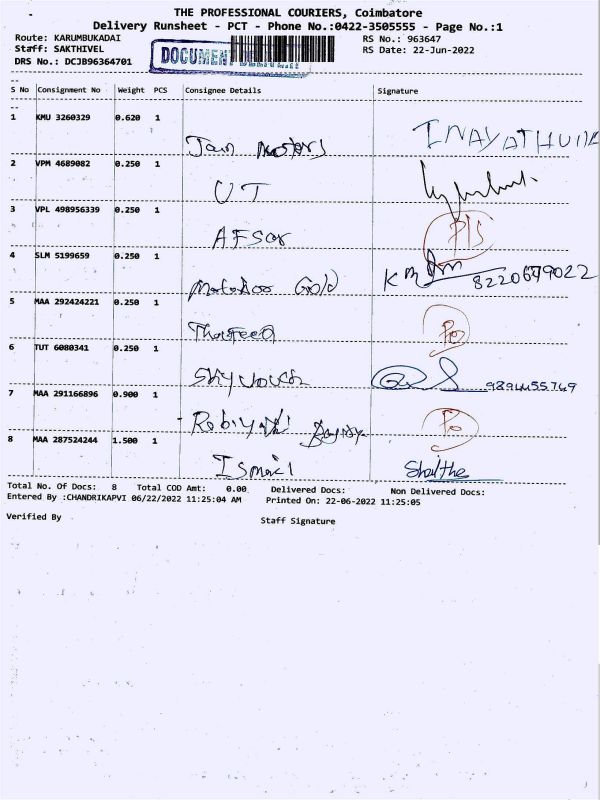 THE PROFESSIONAL COURIERS, Coimbatore
Delivery Runsheet - PCT - Phone No.:0422-3505555 - Page No.:1
Route: KARUMBUKADAI RS No.: 963647
Staff: SAKTHIVEL RS Date: 22-Jun-2022
DRS No.: DCJB96364701 DOCUMENT
S No Consignment No Weight PCS Consignee Details Signature
1 KMU 3260329 0.620 1
Jain Motors INAYATHULLA
2 VPM 4689082 0.250 1
UT
3 VPL 498956339 0.250 1
AFSar
4 SLM 5199659 0.250 1
Gold 8220679022
5 MAA 292424221 0.250 1
Thaufeeq
6 TUT 6080341 0.250 1
9894455769
7 MAA 291166896 0.900 1
8 MAA 287524244 1.500 1
Ismail
Total No. Of Docs: 8 Total COD Amt: 0.00 Delivered Docs: Non Delivered Docs:
Entered By :CHANDRIKAPVI 06/22/2022 11:25:04 AM Printed On: 22-06-2022 11:25:05
Verified By Staff Signature